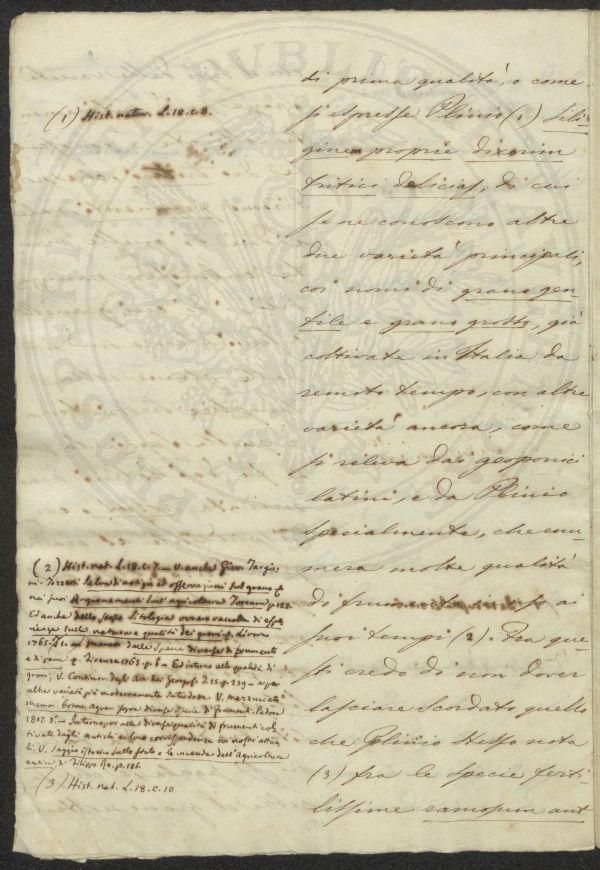 di prima qualità, o come
si espresse Plinio (1) Sili-
ginem proprie dixerim
tritici delicias, di cui
se ne conoscono altre
due varietà principali,
coi nomi di grano gen-
tile e grano grosso, già
coltivate in Italia da
remoto tempo, con altre
varietà ancora, come
si rileva dai geoponici
latini, e da Plinio
specialmente, che enu-
mera molte qualità
di frumento in uso ai
suoi tempi (2). Fra que-
sti credo di non dover
lasciare scordato quello
che Plinio stesso nota
(3) fra le specie ferti-
lissime ramosum aut
(1) Hist. natur. L. 18. c. 8.
(2) Hist. nat. L. 18. c. 7. — V. anche Giov. Targio-
ni-Tozzetti Selva di notizie ed osservazioni sul grano
nei suoi Ragionamenti sull'agricoltura Toscana p. 122.
Ed anche dello stesso Sitologia ovvero raccolta di espe-
rienze sulla natura e qualità dei grani p. Livorno
1765. T. 1. — delle Specie diverse di frumento
e di pane p. Firenze 1765. p. 6 — Ed intorno alle qualità di
grani, V. Atti dei Georgof. T. 15. p. 239 — e per
altre varietà più modernamente introdotte V. Mazzucato
sopra diverse specie di frumenti. Padova
1807. 8° — Intorno poi alle diverse qualità di frumenti col-
tivate dagli antichi e loro corrispondenza coi nostri attua-
li. V. Saggio istorico sullo stato e le vicende dell'Agricoltura
antica di Filippo Re. p. 186.
(3) Hist. nat. L. 18. c. 10